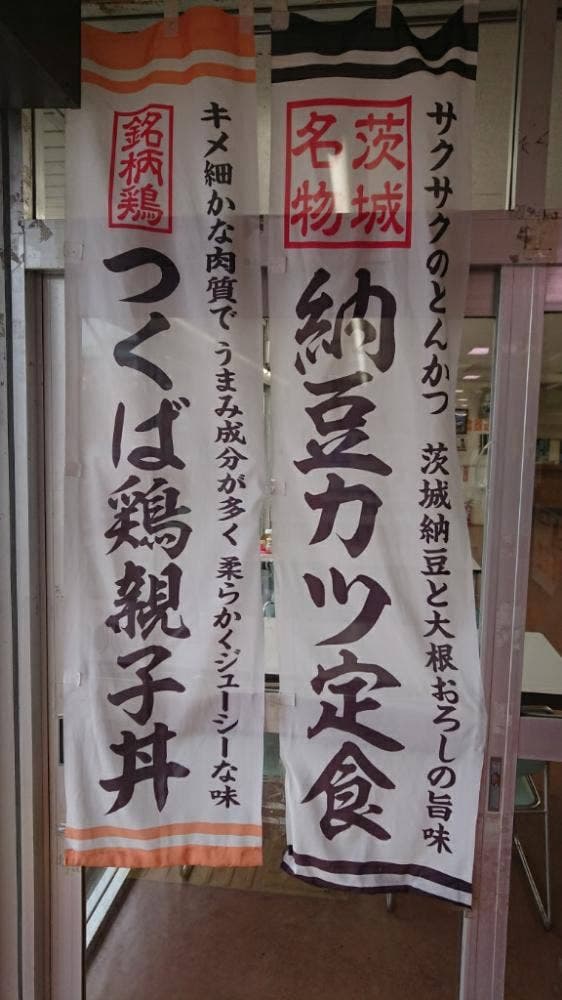 サクサクのとんかつ 茨城納豆と大根おろしの旨味
茨城
名物
納豆カツ定食
キメ細かな肉質で うまみ成分が多く 柔らかくジューシーな味
銘柄鶏
つくば鶏親子丼